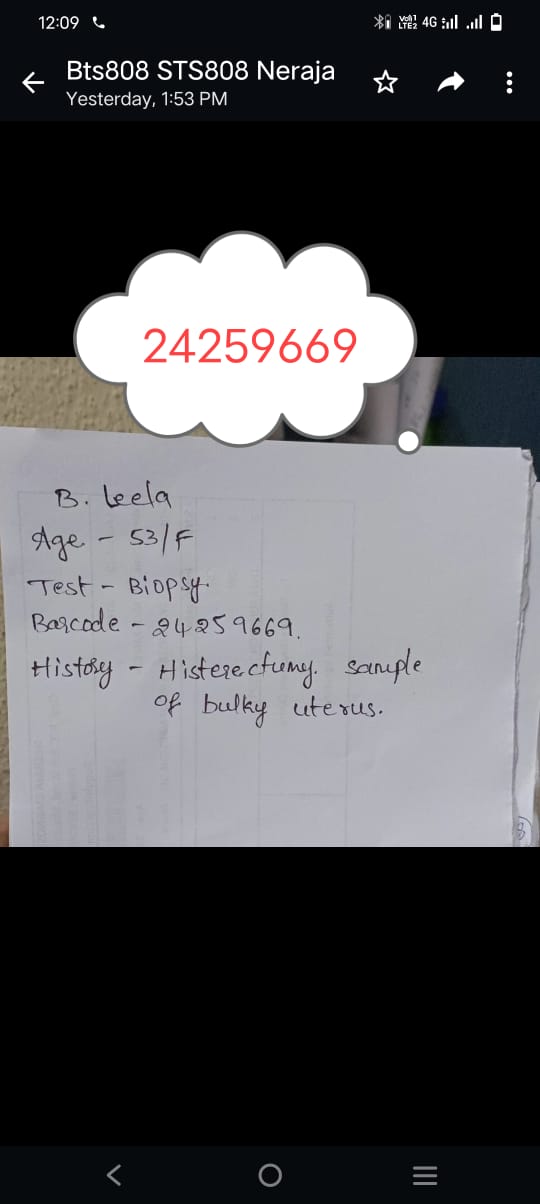 12:09
Vo)) 1
LTE2 4G
Bts808 STS808 Neraja
Yesterday, 1:53 PM
24259669
B. Leela
Age - 53/F
Test - Biopsy.
Barcode - 24259669.
History - Histerectumy. sample
of bulky uterus.